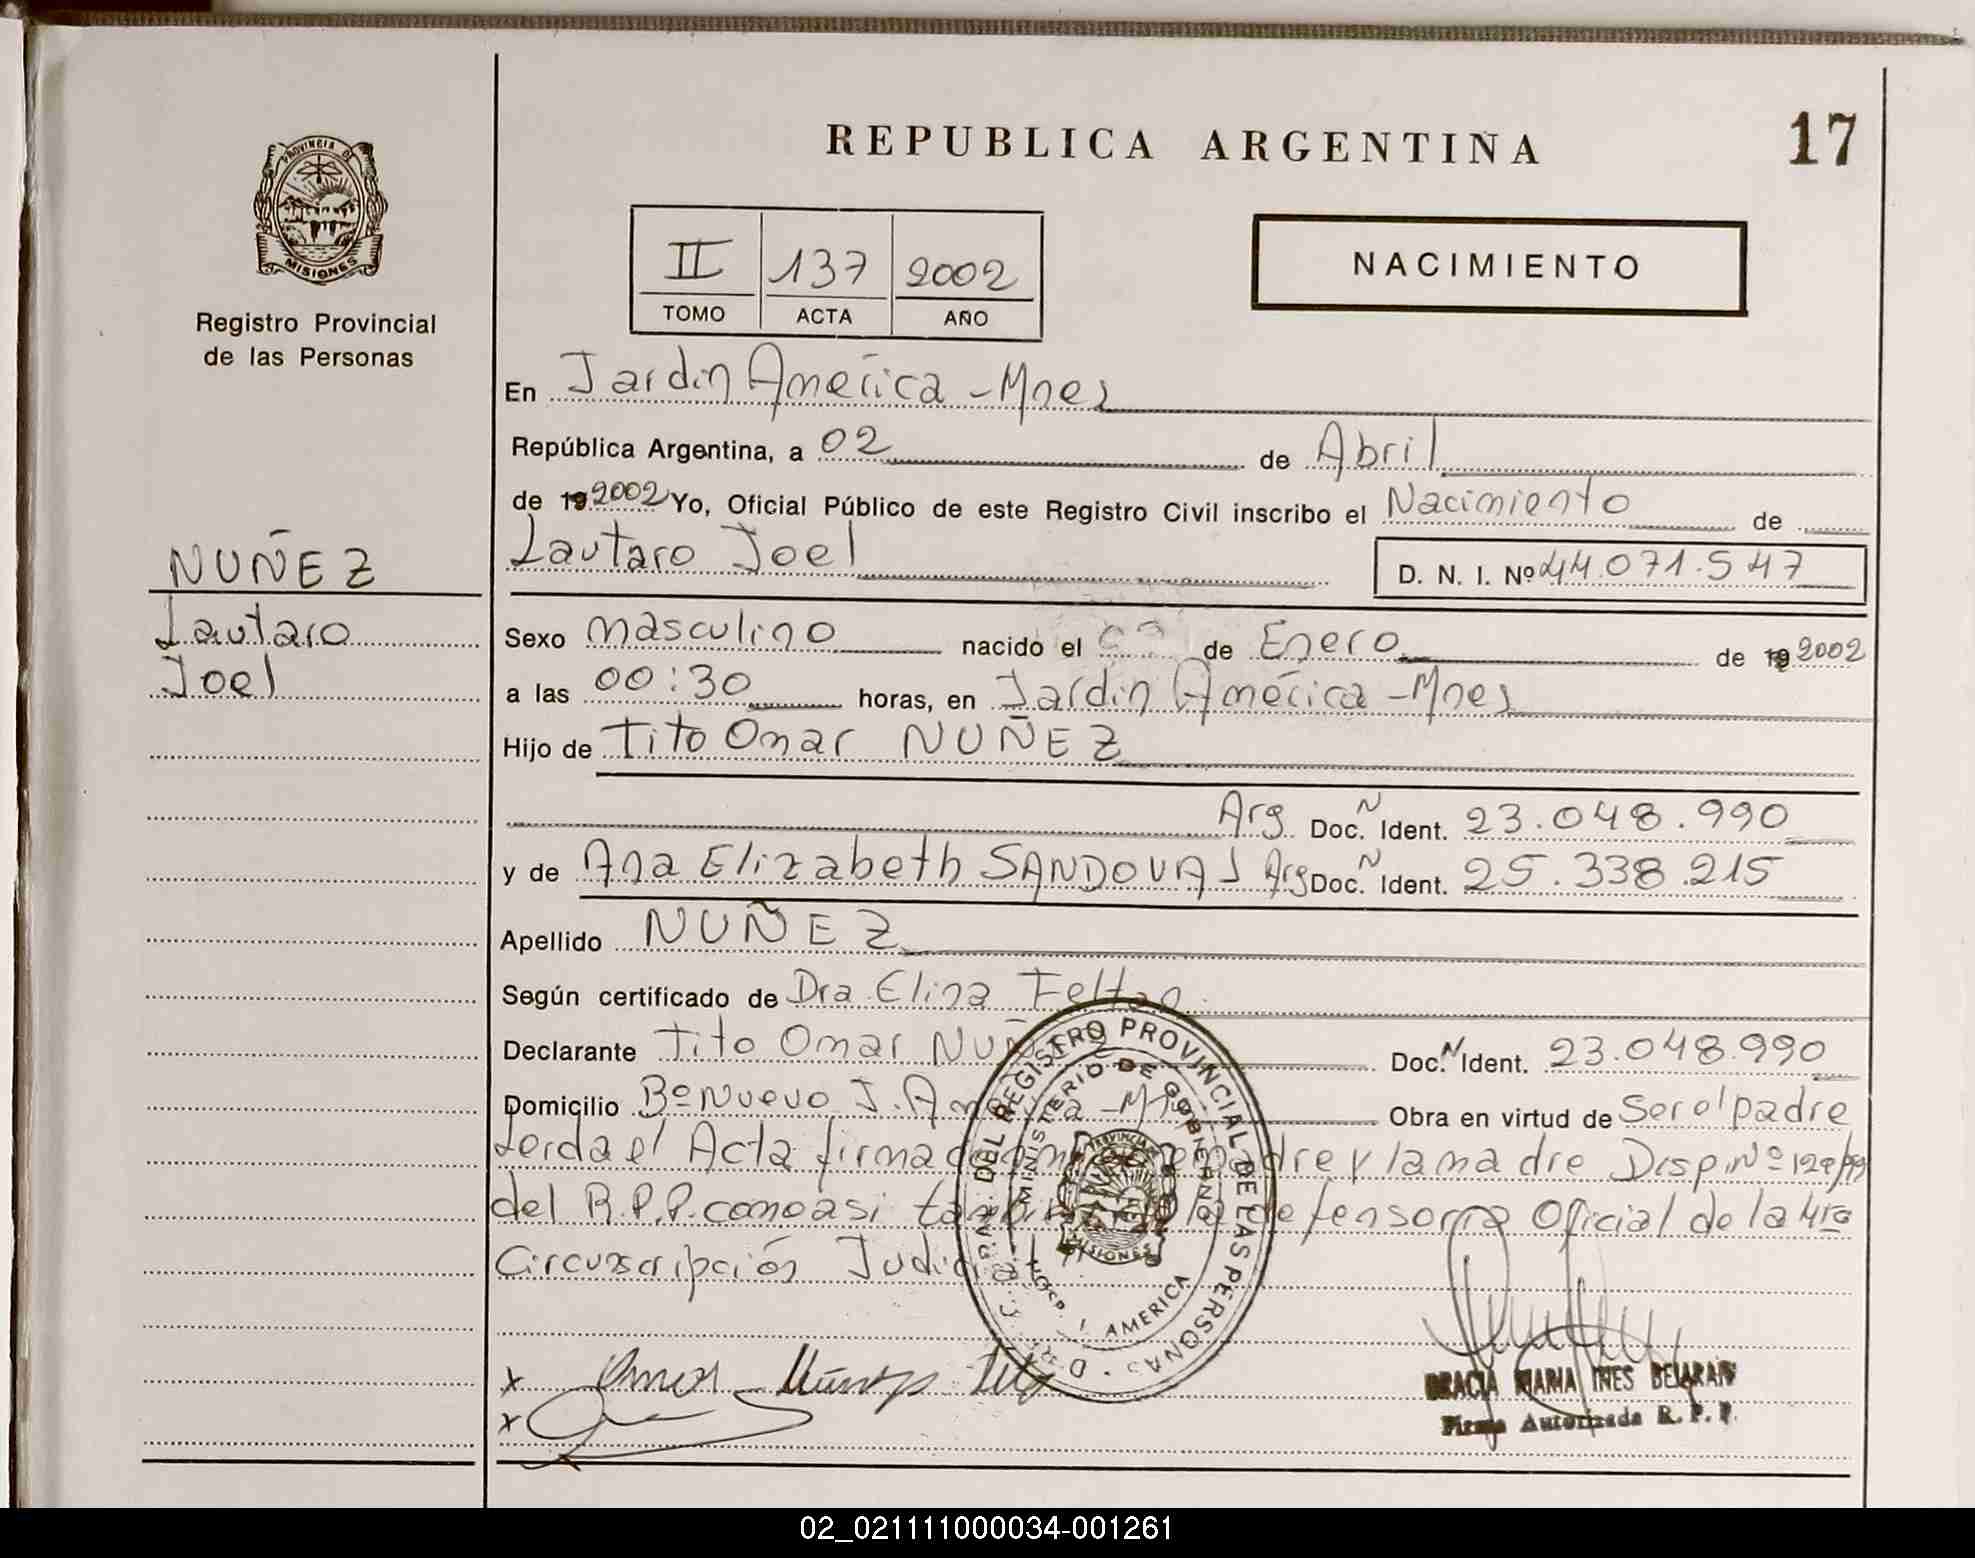 REPUBLICA ARGENTINA
17
PROVINCIA DE
MISIONES
Registro Provincial
de las Personas
II 137 2002
TOMO ACTA AÑO
NACIMIENTO
En Jardin América - Mnes
República Argentina, a 02 de Abril
de 19 2002 Yo, Oficial Público de este Registro Civil inscribo el Nacimiento de
Lautaro Joel D. N. I. Nº 44.071.547
NUÑEZ
Lautaro
Joel
Sexo masculino nacido el de Enero de 19 2002
a las 00:30 horas, en Jardin América - Mnes
Hijo de Tito Omar NUÑEZ
Arg Doc. N Ident. 23.048.990
y de Ana Elizabeth SANDOVAL Arg Doc. N Ident. 25.338.215
Apellido NUÑEZ
Según certificado de Dra Elina
Declarante Tito Omar NUÑ Doc. N Ident. 23.048.990
Domicilio Bº Nuevo J. América - Mnes Obra en virtud de Ser el padre
Leida el Acta firma padre y la madre Disp. Nº
del R.P.P. como asi la defensora Oficial de la 4ta
Circunscripción Judicial
DEL REGISTRO PROVINCIAL DE LAS PERSONAS
MINISTERIO DE GOBIERNO
PROVINCIA
MISIONES
AMERICA
x Omar Núñez Tito
x
GRACIA MARIA INES BEJARAN
Firma Autorizada R. P. P.
02_021111000034-001261